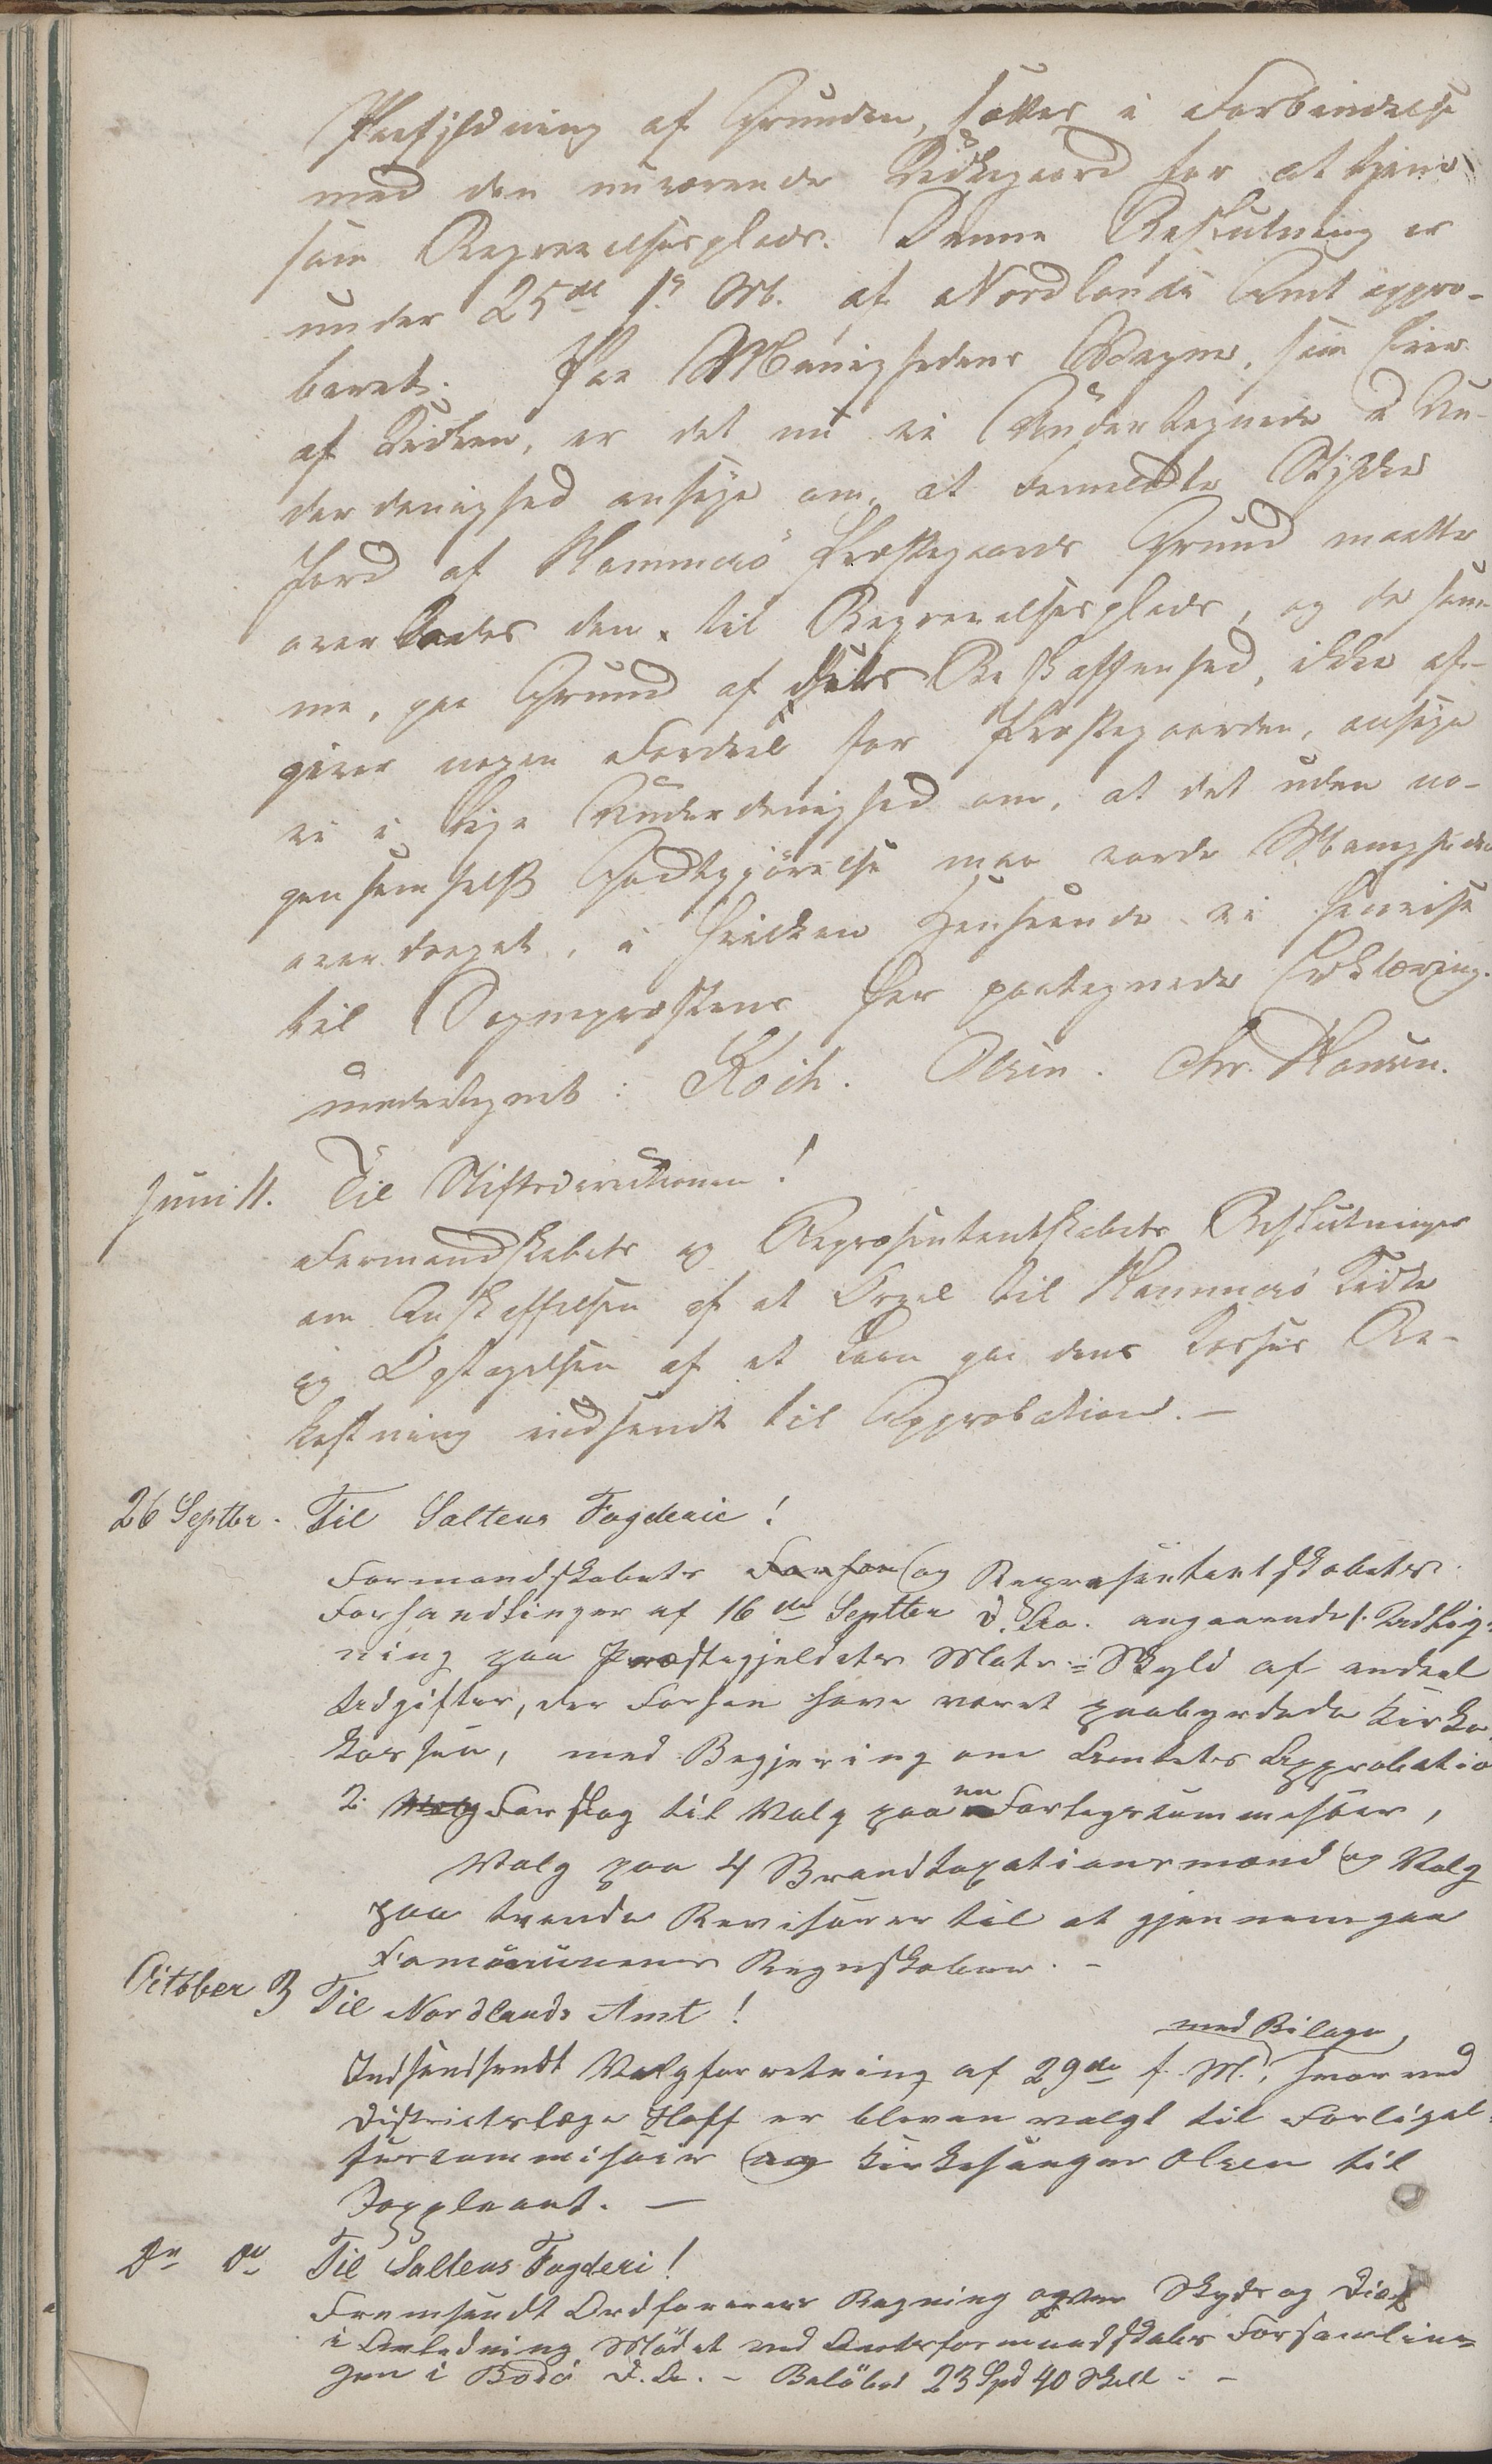 Paafyldning af Grunden, sættes i Forbindelse
med den nuværende Kirkegaard for at tjene
som Begravelsesplads. Denne Beslutning er
under 25de f. M. af Nordlands Amt appro-
beret. Paa Menighedens Vegne, som Eier
af Kirken, er det nu vi Undertegnede i Un-
derdanighed ansøge om, at bemeldte Stykke
Jord af Hammerö Præstegaards Grund maatte
overlades den til Begravelsesplads, og da sam-
me, paa Grund af dets Beskaffenhed, ikke af-
giver nogen Fordeel for Præstegaarden, ansøge
vi i lige Underdanighed om, at det uden no-
gensomhelst Godtgjörelse maa vorde Menigheden
overdraget, i hvilken Henseende vi henvise
til Sognepræstens her paategnede Erklæring.
undertegnet: Koch. Olsen. Chr. Hansen.
Juni 11. Til Stiftsdirectionen!
Formandskabets og Repræsentantskabets Beslutninger
om Anskaffelsen af et Orgel til Hammerö Kirke
og Optagelsen af et Laan paa dens Kasses Be-
kostning indsendt til Approbation. —
26 Septbr. Til Saltens Fogderie!
Formandskabets og Repræsentantskabets
Forhandlinger af 16de Septbr d. Aa. angaaende 1. Udlig-
ning paa Præstegjeldets Matr.-Skyld af endeel
Udgifter, der forhen have været paabyrdede Kirke-
kassen, med Begjering om Amtets Approbatio
2. Forslag til Valg paa en Forligscommissair,
Valg paa 4 Brandtaxationsmænd og Valg
paa tvende Revisorer til at gjennemgaa
Communens Regnskaber. -
October 3 Til Nordlands Amt!
med Bilage,
Valgforretning af 29de f. M., hvorved
Districtslæge Hoff er bleven valgt til Forligel-
sescommissair og Kirkesanger Olsen til
Suppleant. —
Do Do Til Saltens Fogderi!
Fremsendt Ordförerens Regning over Skyds og Diæt
i Anledning Mödet ved Amtsformandskabs Forsamlin-
gen i Bodö d. A. - Belöbet 23 Spd 40 Skill. -